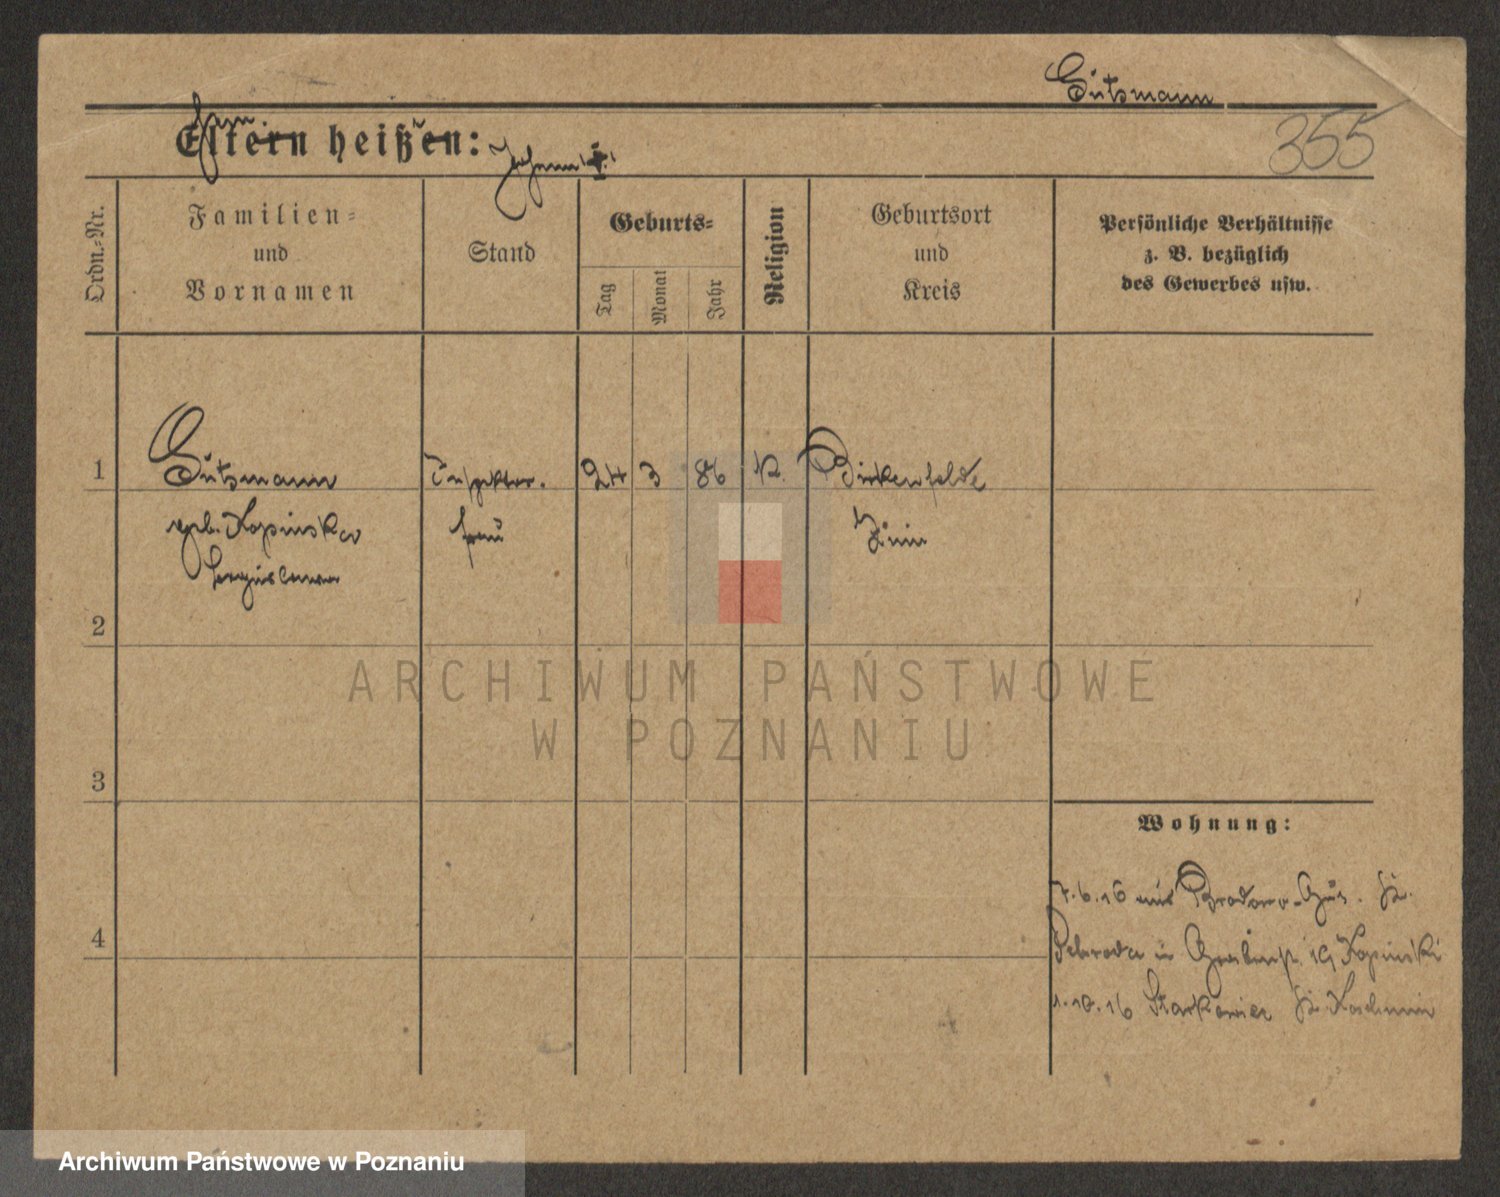 Gutsmann
355
Eltern heißen: Johann
Ordn.-Nr.
Familien-
und
Vornamen
Stand
Geburts-
Tag
Monat
Jahr
Religion
Geburtsort
und
Kreis
Persönliche Verhältnisse
z. B. bezüglich
des Gewerbes usw.
1 Gutsmann Inspektor. 24 3 86 K. Birkenfelde
geb. Kopinska frau Znin
2
3
Wohnung:
7.6.16 aus Brodowo-Gut. Kr.
4
in Grabenstr. 19 Kopinski
1.10.16 Starkowiec Kr. Koschmin
ARCHIWUM PAŃSTWOWE
W POZNANIU
Archiwum Państwowe w Poznaniu